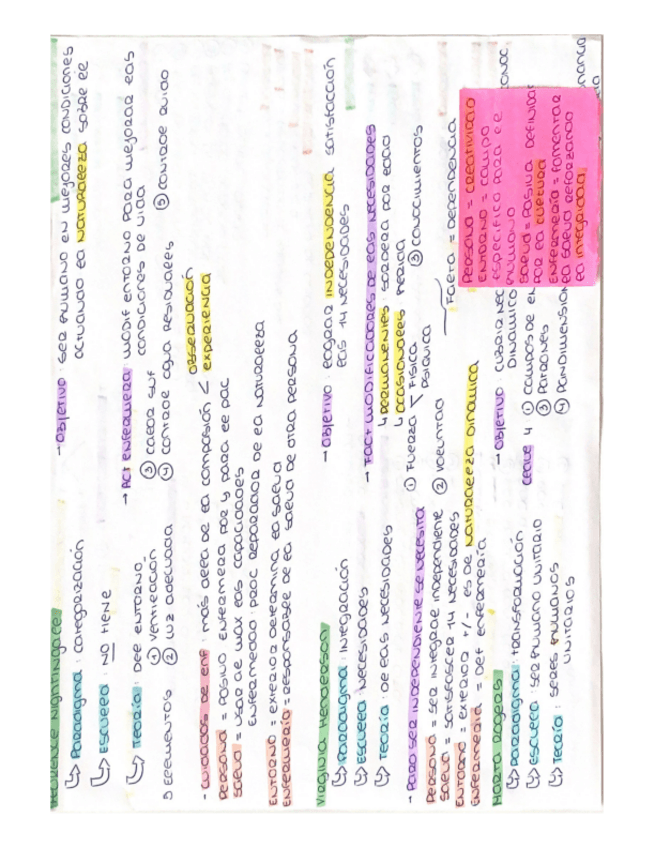 FLORENCE NIGHTINGALE
↳ PARADIGMA: CATEGORIZACIÓN
↳ ESCUELA: NO TIENE
↳ TEORÍA: DEL ENTORNO
5 ELEMENTOS
① VENTILACIÓN
② LUZ ADECUADA
→ OBJETIVO: SER HUMANO EN MEJORES CONDICIONES
ACTUANDO LA NATURALEZA SOBRE ÉL
→ ACT ENFERMERA: MODIF ENTORNO PARA MEJORAR LAS
CONDICIONES DE VIDA
③ CALOR SUF
④ CONTROL AGUA RESIDUALES
⑤ CONTROL RUIDO
- CUIDADOS DE ENF: MÁS ALLÁ DE LA COMPASIÓN < OBSERVACIÓN
EXPERIENCIA
PERSONA = PASIVO ENFERMERA POR Y PARA EL PAC
SALUD = USAR AL MAX LAS CAPACIDADES
ENFERMEDAD: PROC REPARADOR DE LA NATURALEZA
ENTORNO = EXTERIOR DETERMINA LA SALUD
ENFERMERÍA = RESPONSABLE DE LA SALUD DE OTRA PERSONA
VIRGINIA HENDERSON
↳ PARADIGMA: INTEGRACIÓN
↳ ESCUELA: NECESIDADES
↳ TEORÍA: DE LAS NECESIDADES
→ OBJETIVO: LOGRAR INDEPENDENCIA SATISFACCIÓN
LAS 14 NECESIDADES
→ FACT MODIFICADORES DE LAS NECESIDADES
↳ PERMANENTES: SORDERA POR EDAD
↳ OCASIONALES: PÉRDIDA
- PARA SER INDEPENDIENTE SE NECESITA
① FUERZA < FÍSICA
PSÍQUICA
② VOLUNTAD
③ CONOCIMIENTOS
FALTA = DEPENDENCIA
PERSONA = SER INTEGRAL INDEPENDIENTE
SALUD = SATISFASCER 14 NECESIDADES
ENTORNO = EXTERIOR +/- ES DE NATURALEZA DINÁMICA
ENFERMERÍA = DEF ENFERMERÍA
MARTA ROGERS
↳ PARADIGMA: TRANSFORMACIÓN
↳ ESCUELA: SER HUMANO UNITARIO
↳ TEORÍA: SERES HUMANOS
UNITARIOS
→ OBJETIVO: CUBRIR NEC
DINÁMICO
CLAVE 4 ① CAMPOS DE EN
③ PATRONES
④ PANDIMENSION
PERSONA = CREATIVIDAD
ENTORNO = CAMPO
ESPECÍFICO PARA EL
HUMANO
SALUD = PASIVA DEFINIDA
POR LA CULTURA
ENFERMERÍA = FOMENTAR
LA SALUD REFORZANDO
LA INTEGRIDAD